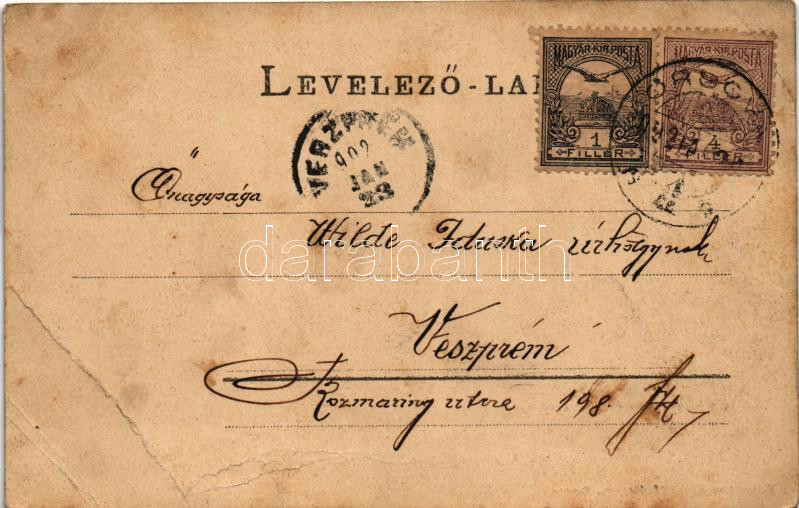 LEVELEZŐ-LA
MAGYAR KIR. POSTA
1
FILLÉR
MAGYAR KIR. POSTA
4
FILLÉR
VESZPRÉM
902
JAN
23
Őnagysága
Wilde Iduska úrhölgynek
darabanth
Veszprém
Rozmaring utcza 198.